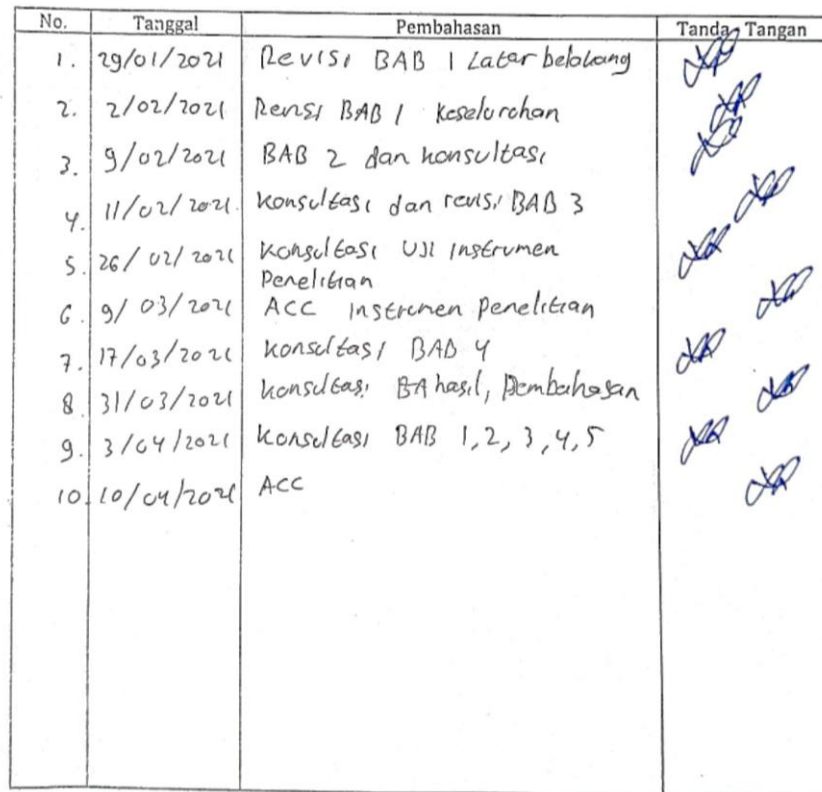 No. Tanggal Pembahasan Tanda Tangan
1. 29/01/2021 Revisi BAB 1 Latar belakang
2. 2/02/2021 Revisi BAB 1 Keseluruhan
3. 9/02/2021 BAB 2 dan konsultasi
4. 11/02/2021. Konsultasi dan revisi BAB 3
5. 26/02/2021 Konsultasi UJI Instrumen
Penelitian
6. 9/03/2021 ACC Instrumen Penelitian
7. 17/03/2021 Konsultasi BAB 4
8. 31/03/2021 Konsultasi BA hasil, Pembahasan
9. 3/04/2021 Konsultasi BAB 1,2,3,4,5
10. 10/04/2021 ACC